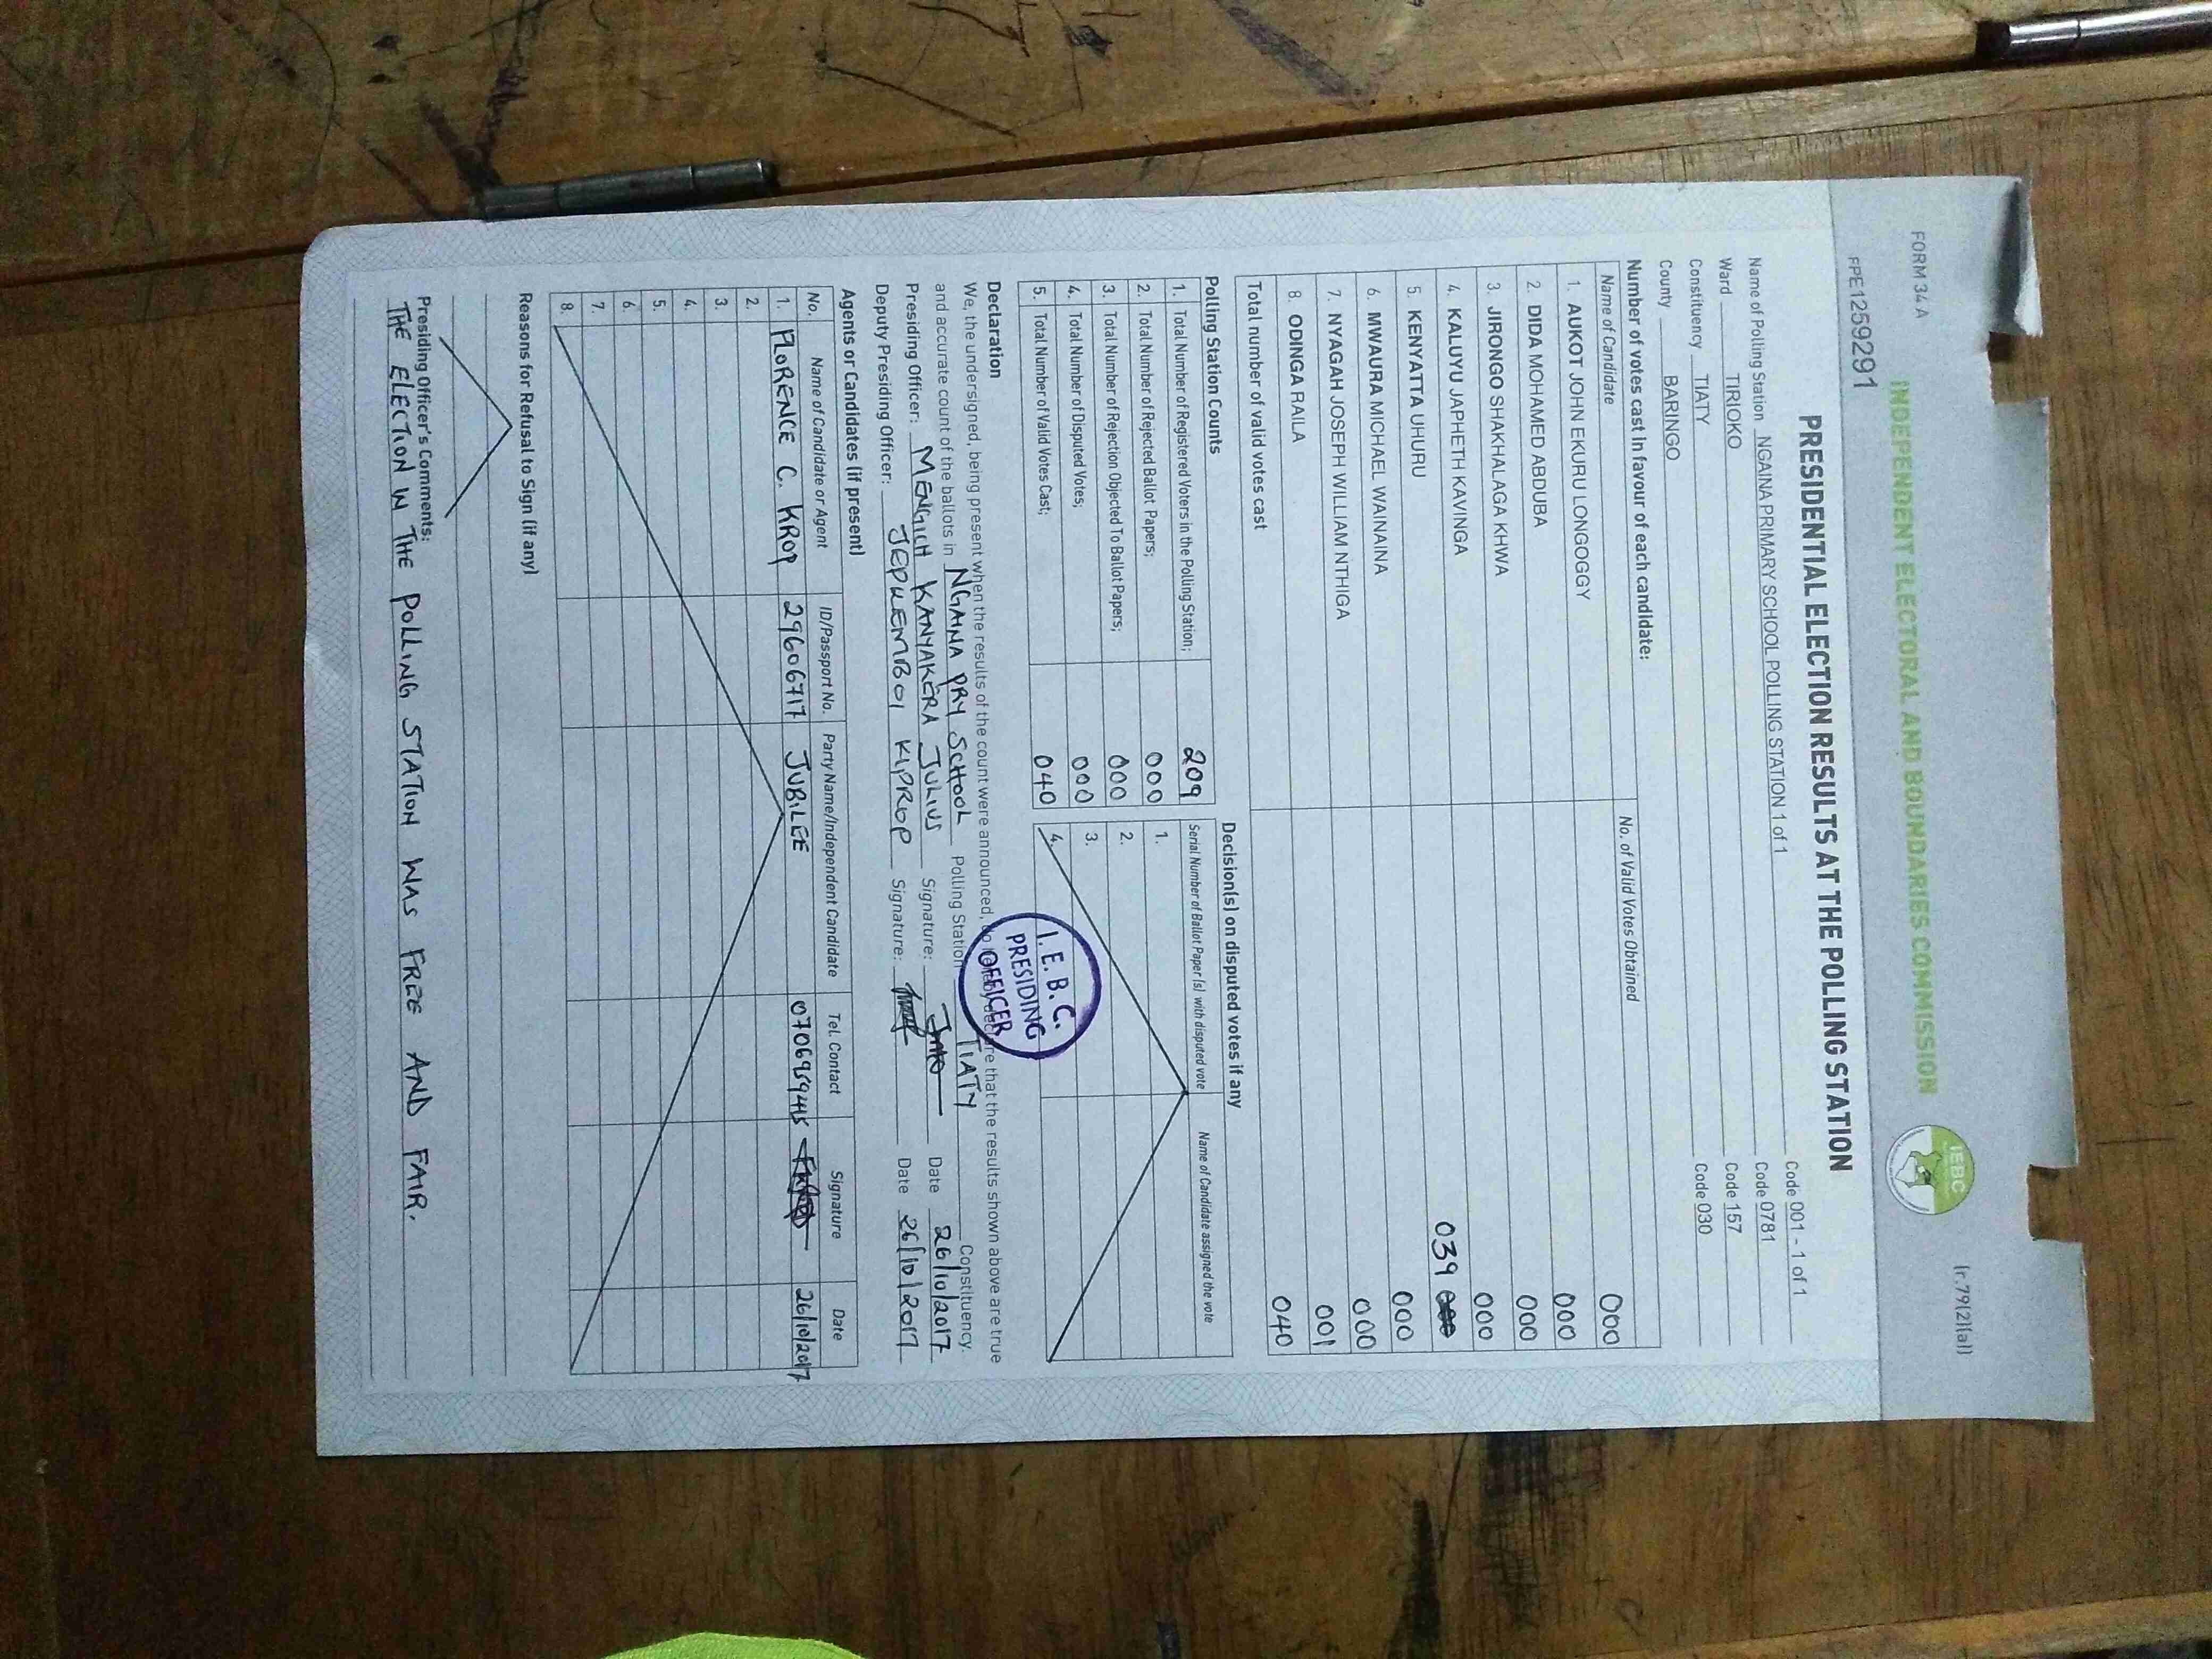 FORM 34 A
(r.79(2)(a))
INDEPENDENT ELECTORAL AND BOUNDARIES COMMISSION
IEBC
FPE1259291
PRESIDENTIAL ELECTION RESULTS AT THE POLLING STATION
Name of Polling Station NGAINA PRIMARY SCHOOL POLLING STATION 1 of 1 Code 001 - 1 of 1
Ward TIRIOKO Code 0781
Constituency TIATY Code 157
County BARINGO Code 030
Number of votes cast in favour of each candidate:
Name of Candidate No. of Valid Votes Obtained
1. AUKOT JOHN EKURU LONGOGGY 000
2. DIDA MOHAMED ABDUBA 000
3. JIRONGO SHAKHALAGA KHWA 000
4. KALUYU JAPHETH KAVINGA 000
5. KENYATTA UHURU 039
6. MWAURA MICHAEL WAINAINA 000
7. NYAGAH JOSEPH WILLIAM NTHIGA 000
8. ODINGA RAILA 001
Total number of valid votes cast 040
Polling Station Counts
1. Total Number of Registered Voters in the Polling Station; 209
2. Total Number of Rejected Ballot Papers; 000
3. Total Number of Rejection Objected To Ballot Papers; 000
4. Total Number of Disputed Votes; 000
5. Total Number of Valid Votes Cast; 040
Decision(s) on disputed votes if any
Serial Number of Ballot Paper (s) with disputed vote Name of Candidate assigned the vote
1.
2.
3.
4.
I.E.B.C.
PRESIDING
OFFICER
Declaration
We, the undersigned, being present when the results of the count were announced, do hereby declare that the results shown above are true
and accurate count of the ballots in NGAINA PRY SCHOOL Polling Station TIATY Constituency.
Presiding Officer: MENGICH KANYAKERA JULIUS Signature: Date 26/10/2017
Deputy Presiding Officer: JEPKEMBOI KIPROP Signature: Date 26/10/2017
Agents or Candidates (if present)
No. Name of Candidate or Agent ID/Passport No. Party Name/Independent Candidate Tel. Contact Signature Date
1. FLORENCE C. KROP 29606717 JUBILEE 0706959415 26/10/2017
2.
3.
4.
5.
6.
7.
8.
Reasons for Refusal to Sign (if any)
Presiding Officer's Comments:
THE ELECTION IN THE POLLING STATION WAS FREE AND FAIR.